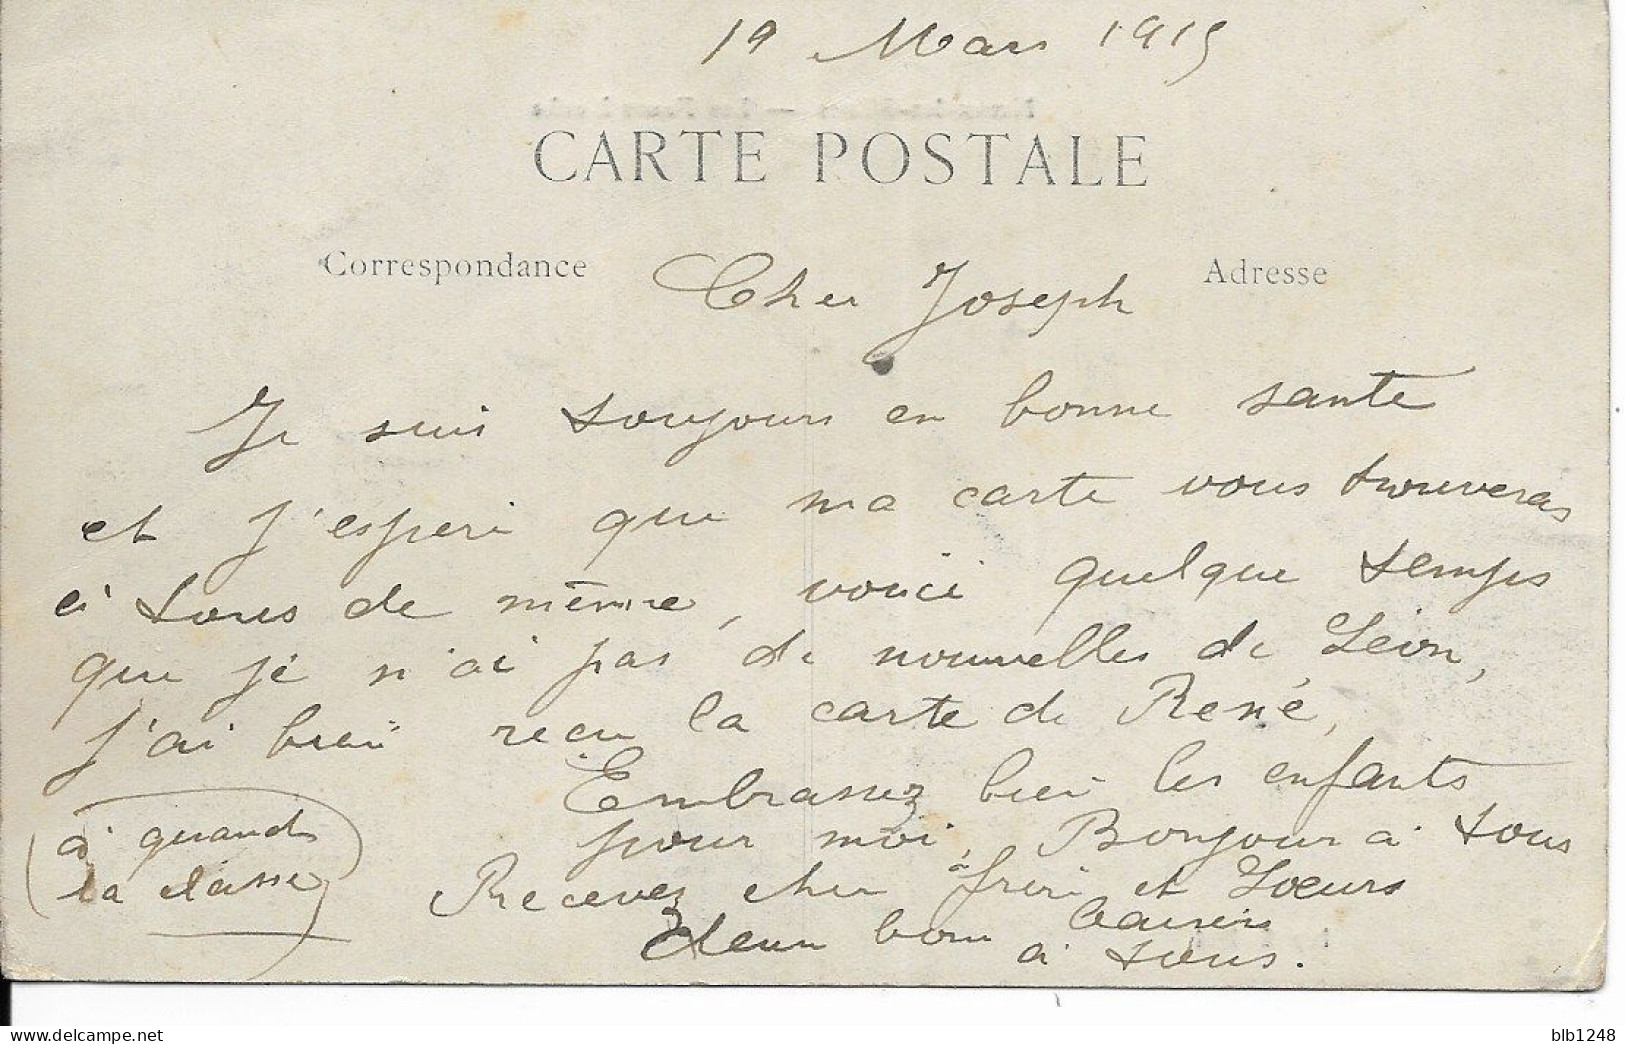 19 Mars 1915
CARTE POSTALE
Correspondance
Adresse
Cher Joseph
Je suis toujours en bonne sante
et j'espere que ma carte vous trouveras
a tous de même, voici quelque temps
que je n'ai pas de nouvelles de Léon,
j'ai bien recu la carte de René,
Embrassez bien les enfants
pour moi, Bonjour a tous
Recevez cher frere et Soeurs
deux bon baisers
a tous.
à quand
la classe
blb1248